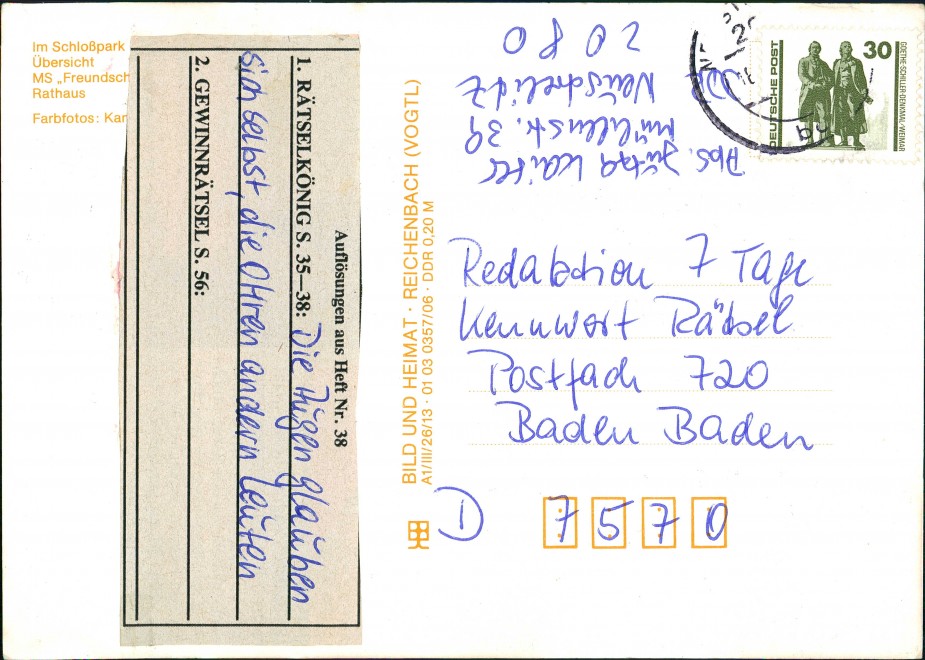 Im Schloßpark
Übersicht
MS „Freundsch
Rathaus
Farbfotos: Kar
Auflösungen aus Heft Nr. 38
1. RÄTSELKÖNIG S. 35—38: Die Augen glauben
sich selbst, die Ohren andern Leuten
2. GEWINNRÄTSEL S. 56:
BILD UND HEIMAT · REICHENBACH (VOGTL)
A1/III/26/13 · 01 03 0357/06 · DDR 0,20 M
Abs. Jutta
Mühlenstr. 39
Neustrelitz
2080
DEUTSCHE POST
30
GOETHE-SCHILLER-DENKMAL/WEIMAR
Redaktion 7 Tage
Kennwort Rätsel
Postfach 720
Baden Baden
D 7570